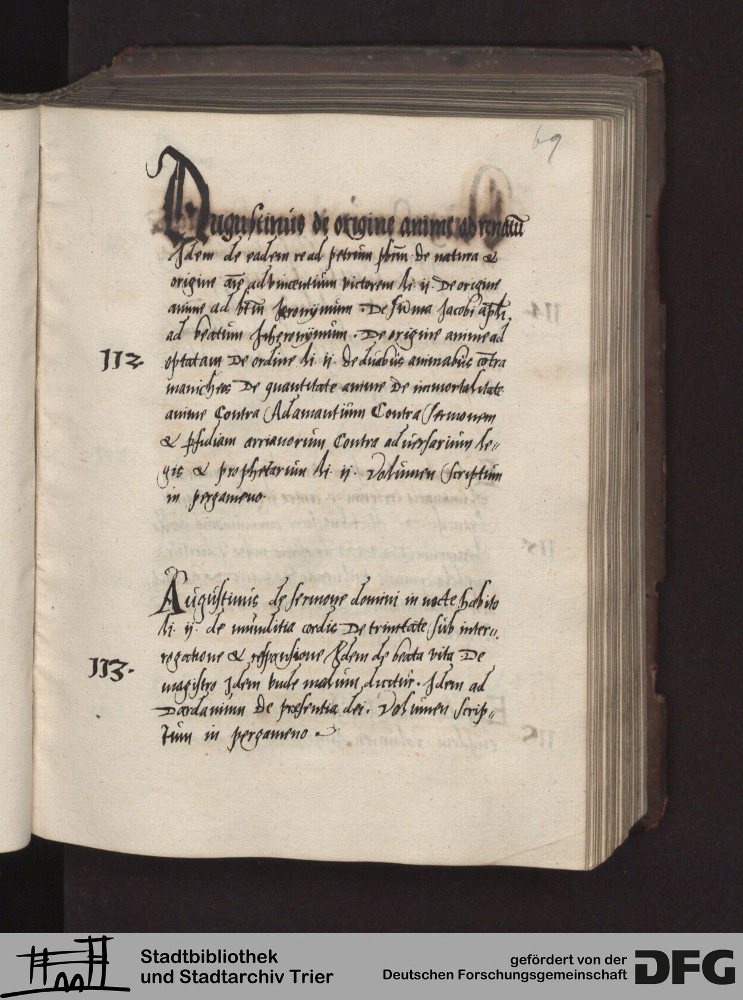 69
Augustinus de origine anime ad renatũ
Idem de eadem re ad petrum pbrm̃ de natura &
origine aĩe ad vincentium victorem li. ij. De origine
anime ad btm̃ Jeronymum. De snĩa Jacobi apl̃i.
ad beatum Jheronymum. De origine anime ad
112 optatam De ordine li ij. de duabus animabus cõtra
manicheos De quantitate anime De immortalitate
anime Contra Adamantium Contra sermonem
& pfidiam arrianorum Contra adversarium le=
gis & prophetarum li. ij. Volumen scriptum
in pergameno.
Augustinus de sermone domini in mõte habito
li. ij. de munditia cordis De trinitate sub inter=
113. rogatione & responsione Idem de beata vita De
magistro Idem vnde malum dicitur. Idem ad
Dardanum De præsentia dei. Volumen scrip=
tum in pergameno
Stadtbibliothek
und Stadtarchiv Trier
gefördert von der
Deutschen Forschungsgemeinschaft
DFG